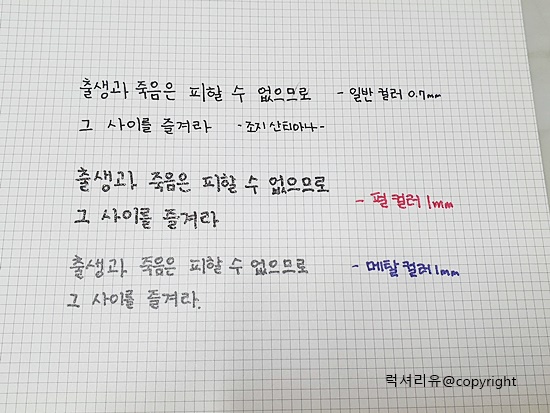 출생과 죽음은 피할 수 없으므로 - 일반 컬러 0.7mm
그 사이를 즐겨라 -조지 산티아나-
출생과 죽음은 피할 수 없으므로
그 사이를 즐겨라
- 펄 컬러 1mm
출생과 죽음은 피할 수 없으므로 - 메탈 컬러 1mm
그 사이를 즐겨라.
럭셔리유@copyright